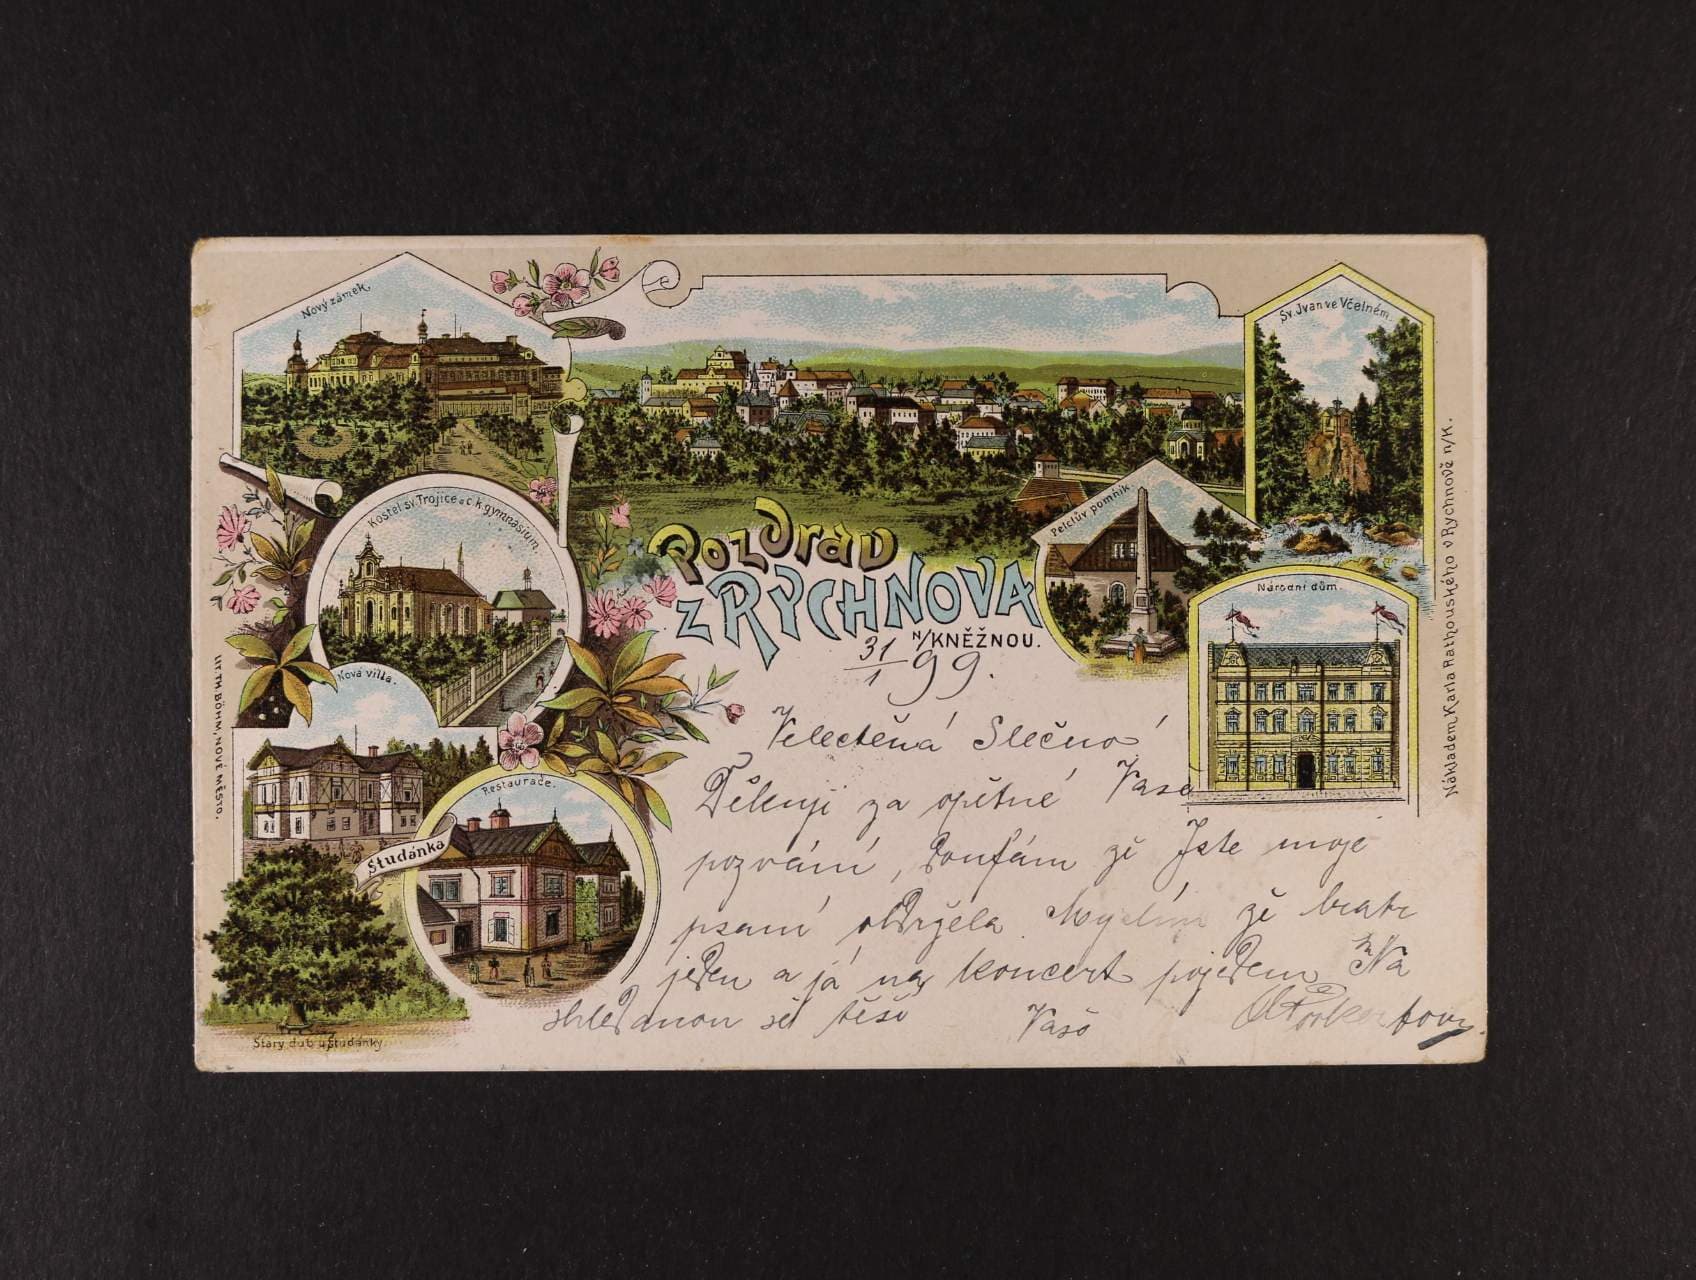 Nový zámek.
Sv. Jvan ve Včelném.
Kostel sv. Trojice a c. k. gymnasium.
Pelclův pomňik.
Pozdrav
z RYCHNOVA
N/KNĚŽNOU.
Národní dům.
Nová villa.
Restaurace.
Studánka
Starý dub u Studánky.
LITH. BÖHM, NOVÉ MĚSTO.
Nákladem Karla Rathouského v Rychnově n/K.
31/1 99.
Velectěná Slečno
Děkuji za opětné Vaše
pozvání, doufám že Jste moje
psaní obdržela. Myslím že bratr
jeden a já na koncert pojedem Na
shledanou se těší Váš